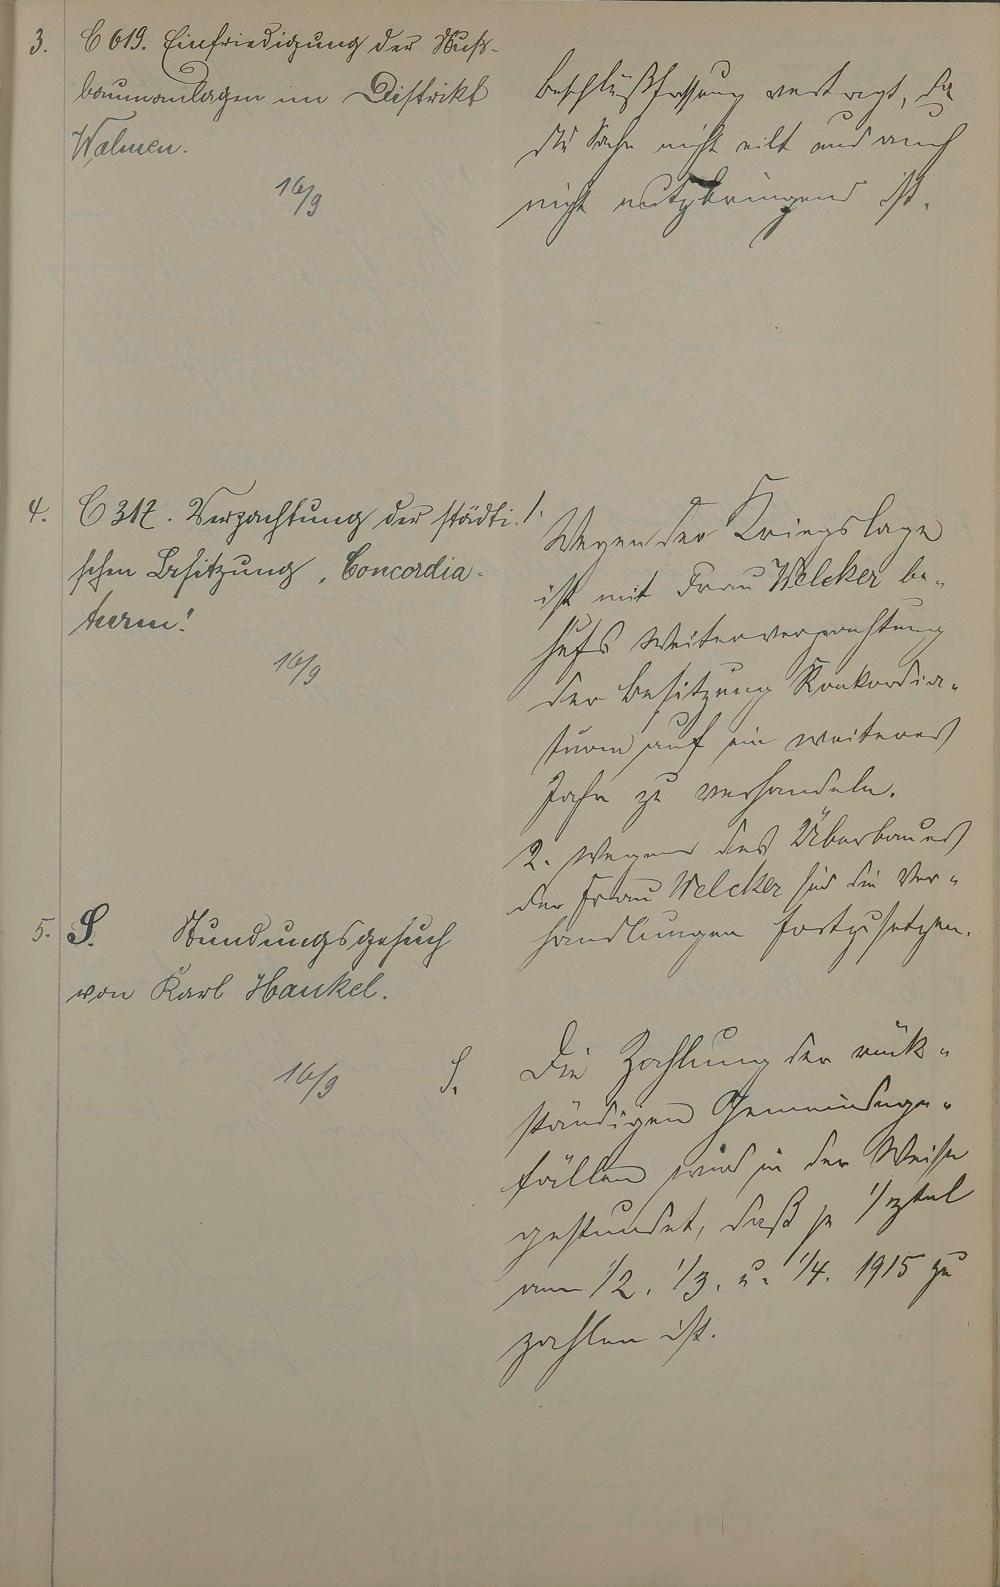 3. C 619. Einfriedigung der Nuß-
baumanlagen im Distrikt
Walmen.
16/9
Beschlußfassung vertagt, da
die Sache nicht eilt und auch
nicht nutzbringend ist.
4. C 317. Verpachtung der städti-
schen Besitzung „Concordia-
turm!
16/9
1. Wegen der Kriegslage
ist mit Frau Welcker be-
hufs Weiterverpachtung
der Besitzung Konkordia-
turm auf ein weiteres
Jahr zu verhandeln.
2. Wegen des Überbaues
der Frau Welcker sind die Ver-
handlungen fortzusetzen.
5. S. Stundungsgesuch
von Karl Hankel.
16/9
S.
Die Zahlung der rück-
ständigen Gemeindege-
fällen wird in der Weise
gestundet, daß je 1/3tel
am 1/2. 1/3. u. 1/4. 1915 zu
zahlen ist.